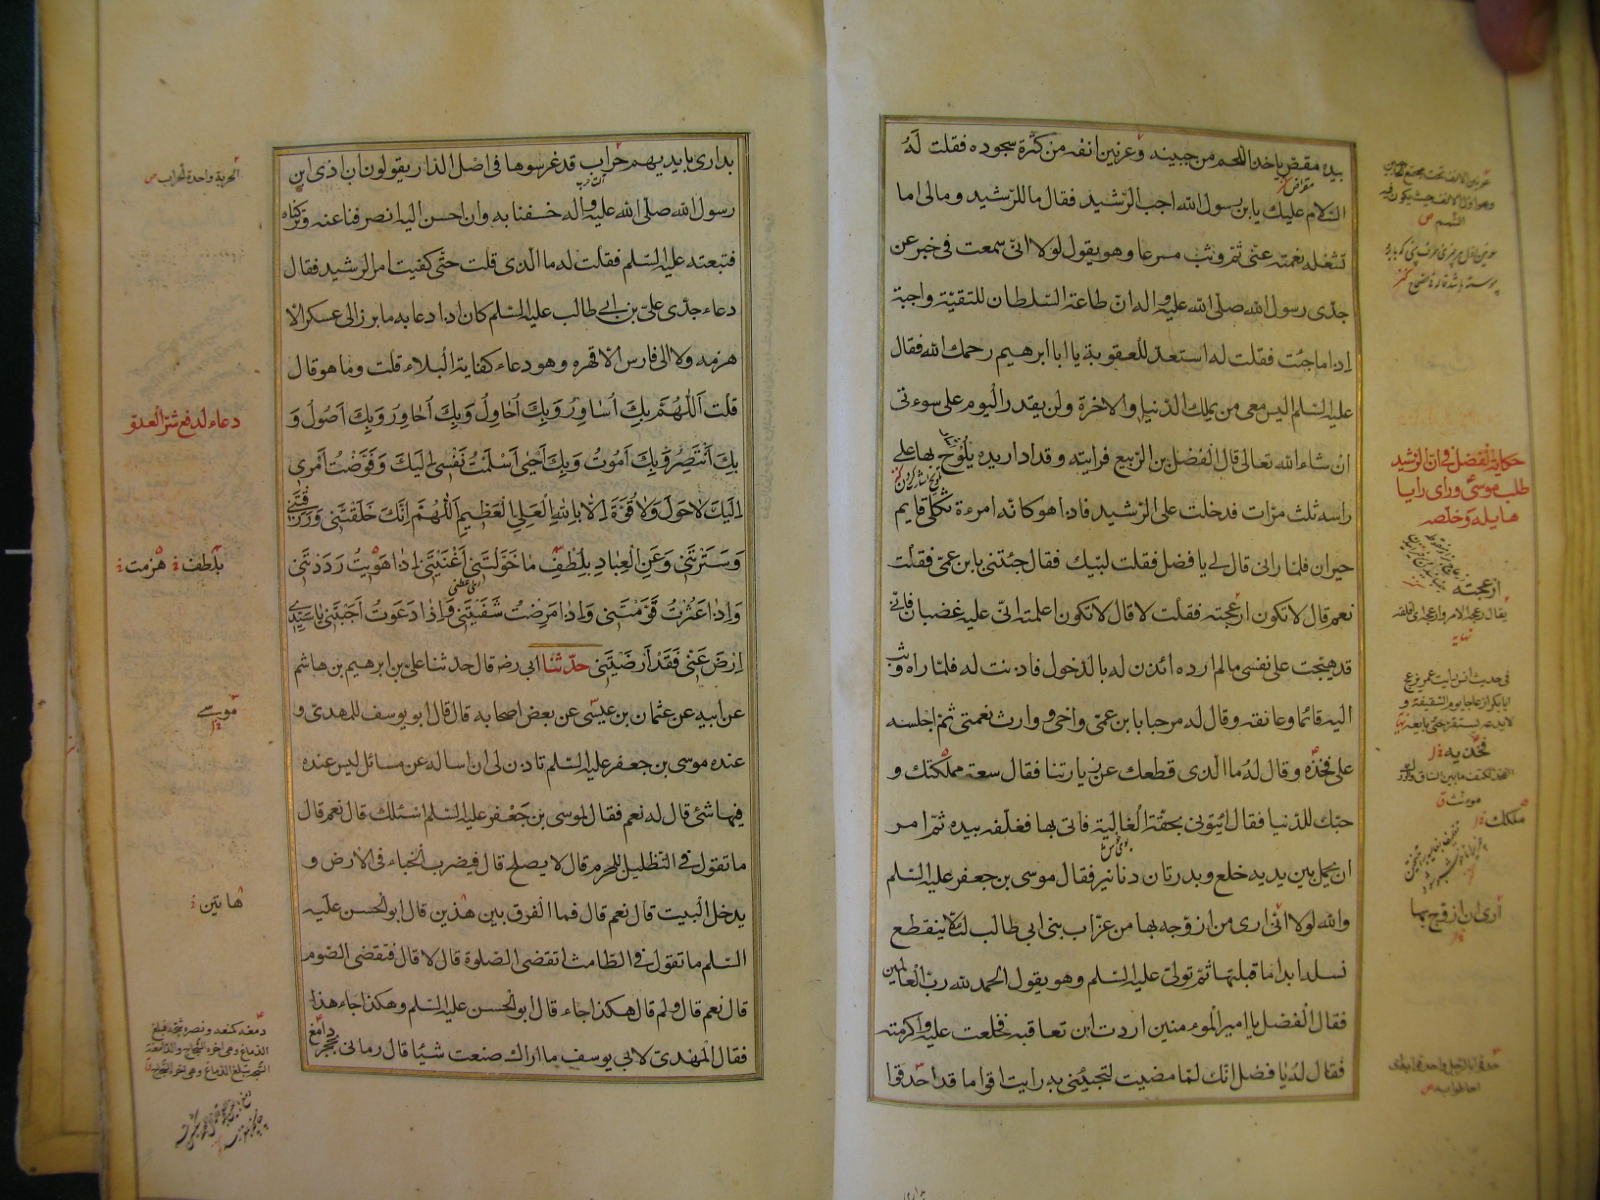 بيده مقص ياخذ اللحم من جبينه وعرنين انفه من كثرة سجوده فقلت له
السلام عليك يابن رسول الله اجب الرشيد فقال ما للرشيد ومالي اما
تشغله نعمته عنى ثم وثب مسرعا وهو يقول لولا انى سمعت في خبر عن
جدى رسول الله صلى الله عليه واله ان طاعة السلطان للتقية واجبة
اذا ما جئت فقلت له استعد للعقوبة يا ابا ابرهيم رحمك الله فقال
عليه السلم اليس معى من يملك الدنيا والاخرة ولن يقدر اليوم على سوء تى
ان شاء الله تعالى قال الفضل بن الربيع فرايته وقد ادار يده يلوح بها على
راسه ثلث مرات فدخلت على الرشيد فاذا هو كانه امرءة ثكلى قايم
حيران فلما رانى قال لى يا فضل فقلت لبيك فقال جئتنى بابن عمى فقلت
نعم قال لا تكون ازعجته فقلت لا قال لا تكون اعلمته انى عليه غضبان فانى
قد هيجت على نفسى ما لم ارده ائذن له بالدخول فاذنت له فلما راه وثب
اليه قائما وعانقه وقال له مرحبا بابن عمى واخى ووارث نعمتى ثم اجلسه
على فخذه وقال له ما الذى قطعك عن زيارتنا فقال سعة مملكتك و
حبك للدنيا فقال ايتونى بحقة الغالية فاتى بها فغلفه بيده ثم امر
ان يحمل بين يديه خلع وبدرتان دنانير فقال موسى بن جعفر عليه السلم
والله لولا انى ارى من ازوجه بها من عزاب بنى ابى طالب لئلا ينقطع
نسله ابدا ما قبلتها ثم تولى عليه السلم وهو يقول الحمد لله رب العالمين
فقال الفضل يا امير المومنين اردت ان تعاقبه فخلعت عليه واكرمته
فقال له يا فضل انك لما مضيت لتجيئنى به رايت اقواما قد احدقوا
حكاية الفضل
طلب موسى وراى رايا
هايلة وخلصه
ازعجته
فخذيه
ملكك
ارى ان ازوج بها
بدارى بايديهم حراب قد غرسوها في اصل الدار يقولون ان اذى ابن
رسول الله صلى الله عليه واله خسفنا به وان احسن اليه انصرفنا عنه وتركناه
فتبعته عليه السلم فقلت له ما الذى قلت حتى كفيت امر الرشيد فقال
دعاء جدى على بن ابى طالب عليه السلم كان اذا دعا به ما برز الى عسكر الا
هزمه ولا الى فارس الا قهره وهو دعاء كفاية البلاء قلت وما هو قال
قلت اللهم بك اساور وبك احاول وبك احاور وبك اصول و
بك انتصر وبك اموت وبك احيى اسلمت نفسى اليك وفوضت امرى
اليك لا حول ولا قوة الا بالله العلى العظيم اللهم انك خلقتنى ورزقتنى
وسترتنى وعن العباد بلطف ما خولتنى اغنيتنى اذا هويت رددتنى
واذا عثرت قومتنى واذا مرضت شفيتنى واذا دعوت اجبتنى يا سيدى
ارض عنى فقد ارضيتنى حدثنا ابى رضه قال حدثنا على بن ابرهيم بن هاشم
عن ابيه عن عثمان بن عيسى عن بعض اصحابه قال قال ابو يوسف للمهدى و
عنده موسى بن جعفر عليه السلم تاذن لى ان اساله عن مسائل ليس عنده
فيها شئ قال له نعم فقال لموسى بن جعفر عليه السلم اسئلك قال نعم قال
ما تقول في التظليل للمحرم قال لا يصلح قال فيضرب الخباء في الارض و
يدخل البيت قال نعم قال فما الفرق بين هذين قال ابو الحسن عليه
السلم ما تقول في الطامث اتقضى الصلوة قال لا قال فتقضى الصوم
قال نعم قال ولم قال هكذا جاء قال ابو الحسن عليه السلم وهكذا جاء هذا
فقال المهدى لابى يوسف ما اراك صنعت شيئا قال رمانى بحجر دامغ
الحربة واحدة الحراب ص
دعاء لدفع شر العدو
بلطف
هزمت
موسى
هاتين